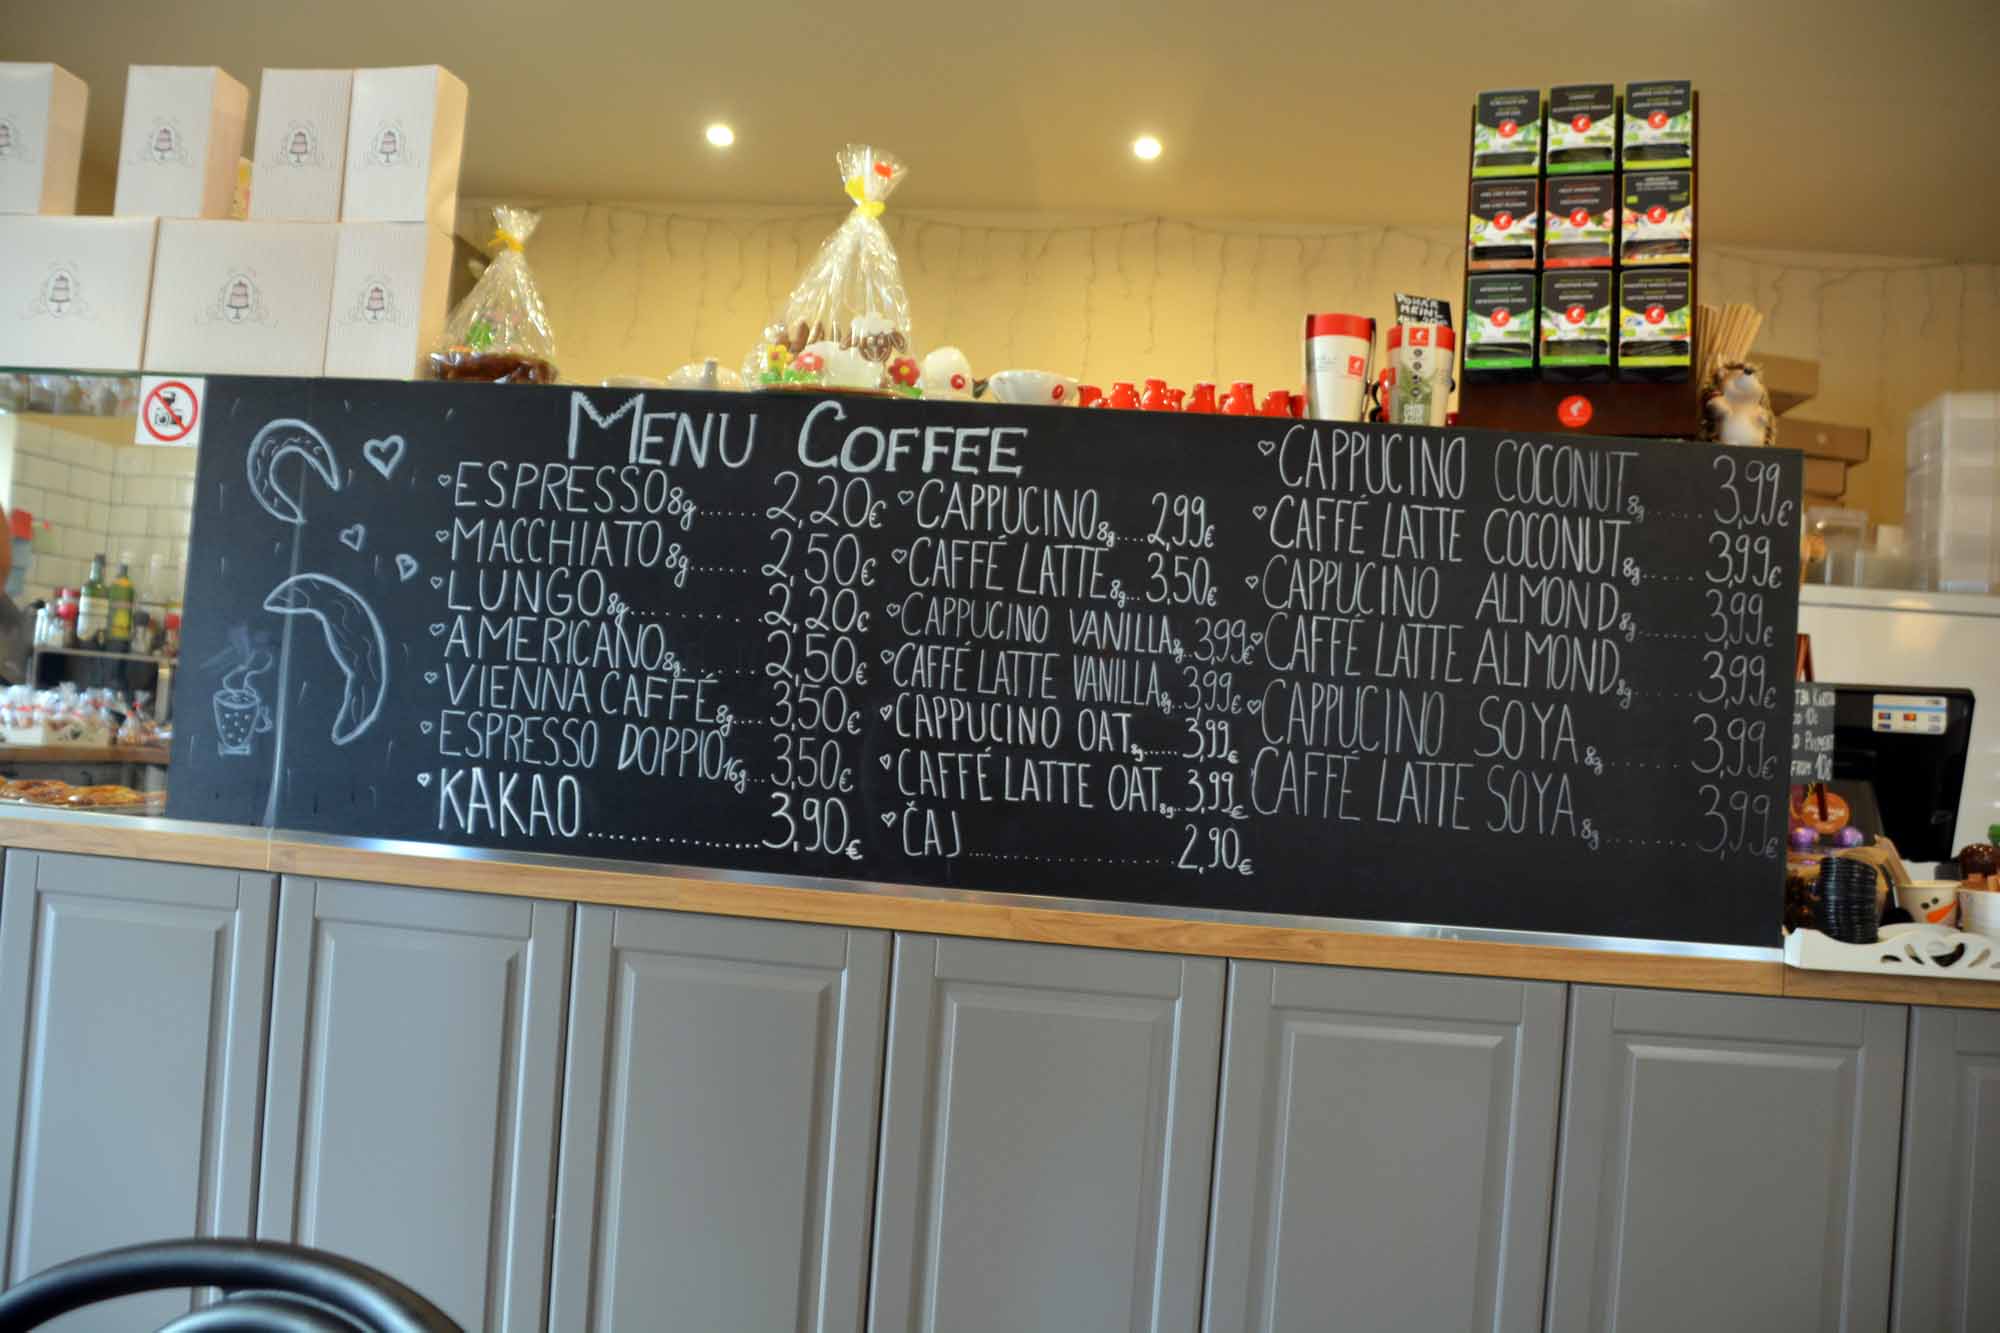 MENU COFFEE
ESPRESSO 8g...... 2,20€
MACCHIATO 8g...... 2,50€
LUNGO 8g......... 2,20€
AMERICANO 8g....... 2,50€
VIENNA CAFFÉ 8g.... 3,50€
ESPRESSO DOPPIO 16g... 3,50€
KAKAO............... 3,90€
CAPPUCINO 8g.... 2,99€
CAFFÉ LATTE 8g... 3,50€
CAPPUCINO VANILLA 8g. 3,99€
CAFFÉ LATTE VANILLA 8g. 3,99€
CAPPUCINO OAT 8g...... 3,99€
CAFFÉ LATTE OAT 8g.. 3,99€
ČAJ................. 2,90€
CAPPUCINO COCONUT 8g..... 3,99€
CAFFÉ LATTE COCONUT 8g..... 3,99€
CAPPUCINO ALMOND 8g...... 3,99€
CAFFÉ LATTE ALMOND 8g...... 3,99€
CAPPUCINO SOYA 8g....... 3,99€
CAFFÉ LATTE SOYA 8g....... 3,99€
POHÁR
MEINL
FROM 10€